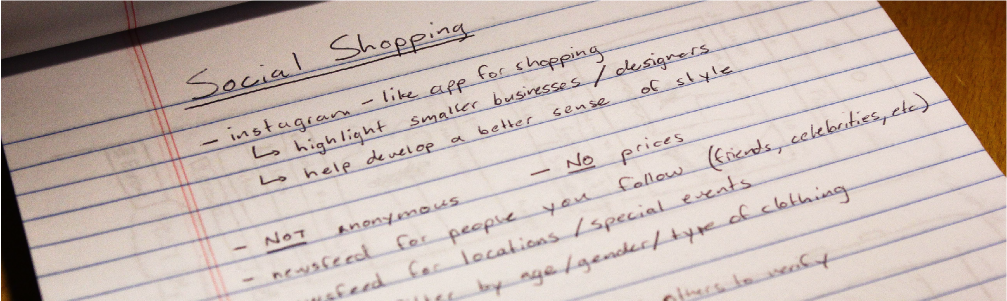 Social Shopping
- instagram - like app for shopping
↳ highlight smaller businesses / designers
↳ help develop a better sense of style
- NOT anonymous - NO prices
- newsfeed for people you follow (friends, celebrities, etc)
newsfeed for locations / special events
filter by age/gender/type of clothing
others to verify